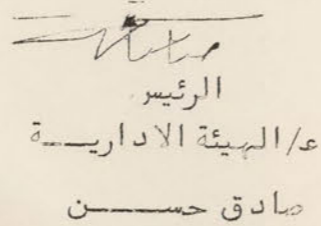 الرئيس
ع/الهيئة الادارية
صادق حسن